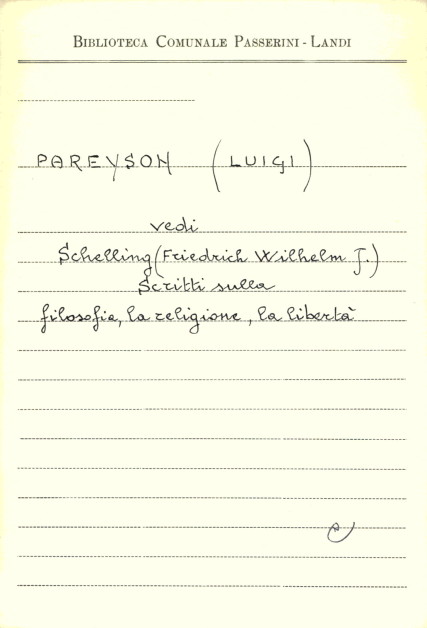 BIBLIOTECA COMUNALE PASSERINI - LANDI
PAREYSON (LUIGI)
vedi
Schelling (Friedrich Wilhelm J.)
Scritti sulla
filosofia, la religione, la libertà